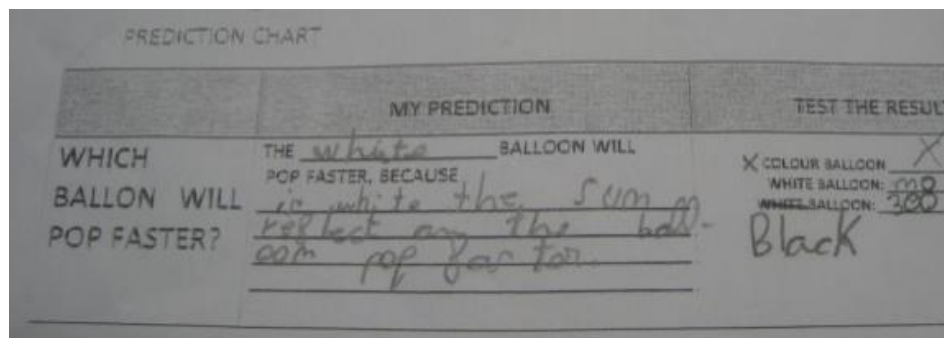 PREDICTION CHART
MY PREDICTION
TEST THE RESUL
WHICH
BALLON WILL
POP FASTER?
THE white BALLOON WILL
POP FASTER, BECAUSE
is white the sun
reflect am the ball-
oon pop faster.
X COLOUR BALLOON X
WHITE BALLOON: no
WHITE BALLOON: 300
Black